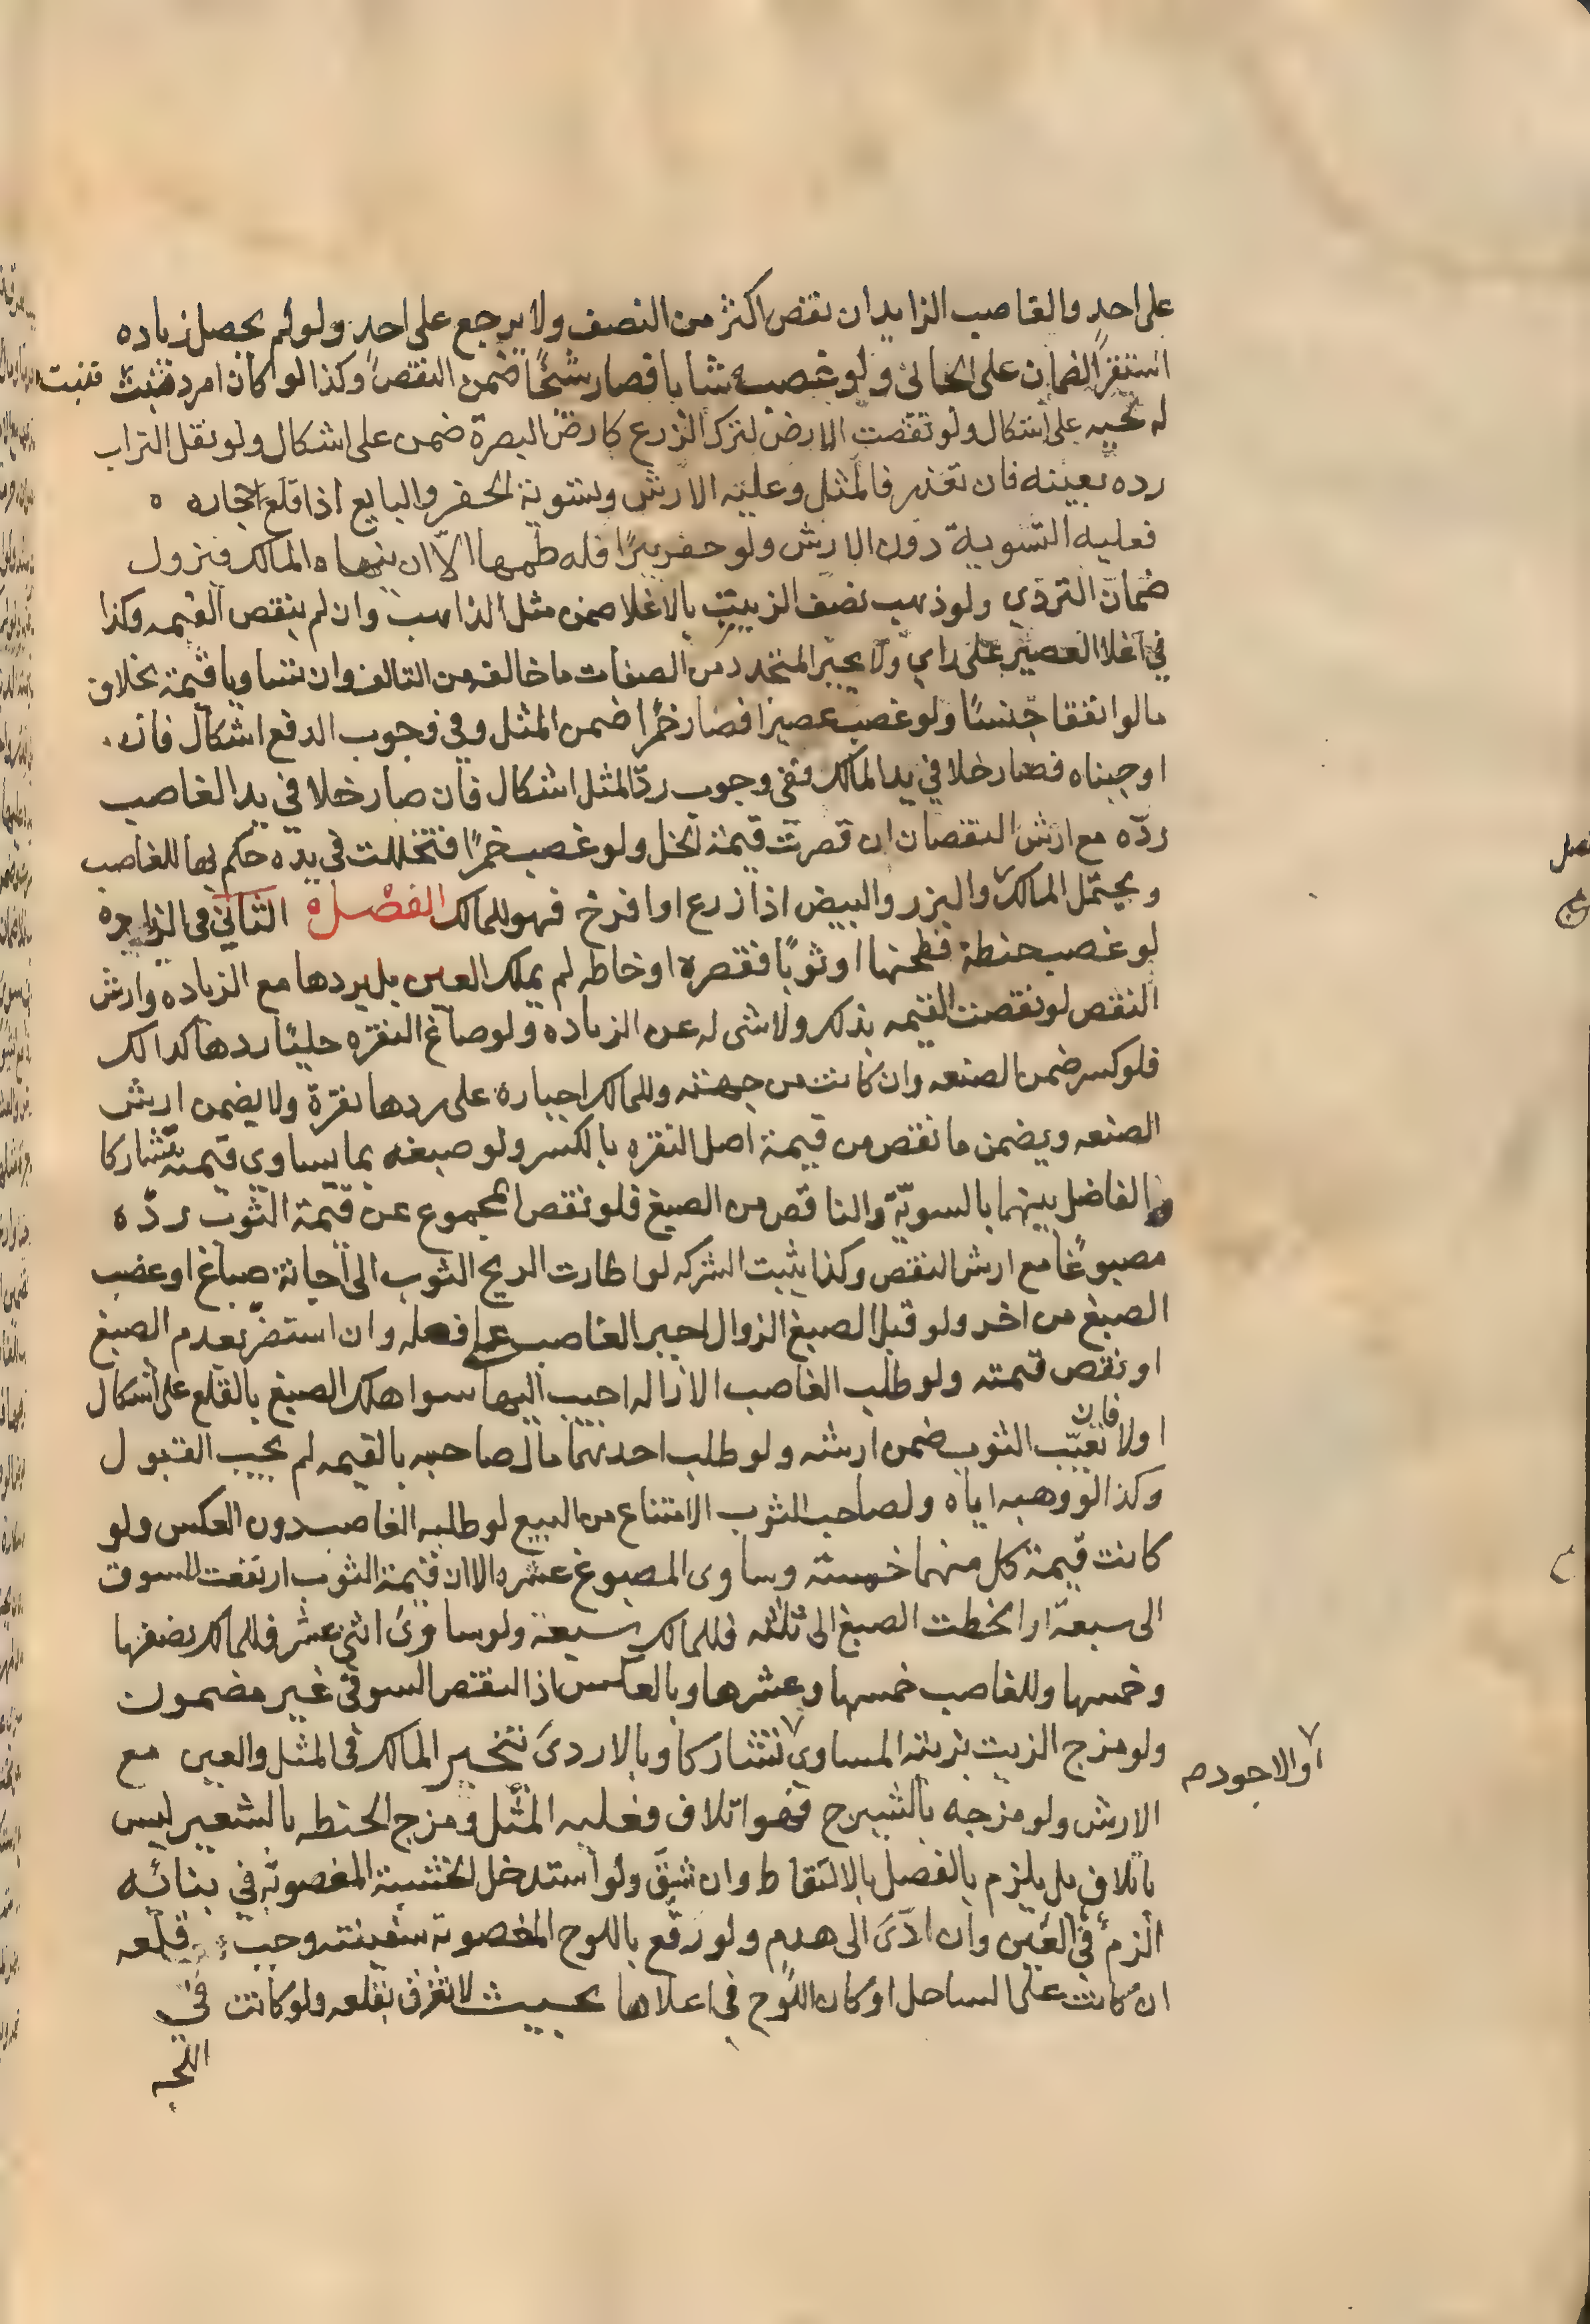 على احد والغاصب الزايد ان نقص اكثر من النصف ولا يرجع على احد ولو لم يحصل زياده
استقر الضمان على الجاني ولو غصب شابا فصار شيخًا ضمن النقص وكذا لو كان امرد فنبتت فنبت
له لحيه على اشكال ولو نقصت الارض لترك الزرع كارض البصرة ضمن على اشكال ولو نقل التراب
رده بعينه فان تعذر فالمثل وعليه الارش وتسوية الحفر والبايع اذا قلع احجاره
فعليه التسوية دون الارش ولو حفر بيرًا فله طمها الّا ان ينهاه المالك فيزول
ضمان التردي ولو ذهب نصف الزيت بالاغلا ضمن مثل الذاهب وان لم ينقص القيمه وكذا
في اغلا العصير على راي ولا يجبر المتجدد من الصفات ما خالفه من التالف وان تساويا قيمة بخلاف
ما لو اتفقا جنسًا ولو غصب عصيرا فصار خمرًا ضمن المثل وفي وجوب الدفع اشكال فان
اوجبناه فصار خلا في يد المالك ففي وجوب ردّ المثل اشكال فان صار خلا في يد الغاصب
ردّه مع ارش النقصان ان قصرت قيمة الخل ولو غصب خمرًا فتخللت في يده حكم بها للغاصب
ويحتمل المالك والبزر والبيض اذا زرع او افرخ فهو للمالك الفصل الثاني في الزياده
لو غصب حنطة فطحنها او ثوبًا فقصره او خاطه لم يملك العين بل يردها مع الزياده وارش
النقص لو نقصت القيمه بذلك ولا شى له عن الزياده ولو صاغ النقره حليًا ردها كذالك
فلو كسر ضمن الصنعه وان كانت من جهته وللمالك اجباره على ردها نقرة ولا يضمن ارش
الصنعه ويضمن ما نقص من قيمة اصل النقره بالكسر ولو صبغه بما يساوي قيمته تشاركا
فالفاضل بينهما بالسويّة والناقص من الصبغ فلو نقص المجموع عن قيمة الثوب ردّه
مصبوغًا مع ارش النقص وكذا يثبت الشركه لو اطارت الريح الثوب الى اجانة صباغ او غصب
الصبغ من اخر ولو قبل الصبغ الزوال اجبر الغاصب على فصله وان استضرّ بعدم الصبغ
او نقص قيمته ولو طلب الغاصب الازاله اجيب اليها سوا هلك الصبغ بالقلع على اشكال
اولا فان تعيّب الثوب ضمن ارشه ولو طلب احدهما مال صاحبه بالقيمه لم يجب القبول
وكذا لو وهبه اياه ولصاحب الثوب الامتناع من البيع لو طلبه الغاصب دون العكس ولو
كانت قيمة كل منهما خمسة وساوى المصبوغ عشره الا ان قيمة الثوب ارتفعت للسوق
الى سبعة او انحطت الصبغ الى ثلثه فللمالك سبعة ولو ساوى اثنى عشر فللمالك نصفها
وخمسها وللغاصب خمسها وعشرها وبالعكس اذ النقص السوقي غير مضمون
ولو مزج الزيت بزيته المساوي تشاركا وبالاردى تتخير المالك في المثل والعين مع
او الاجود صـ
الارش ولو مزجه بالشيرج فهو اتلاف فعليه المثل ومزج الحنطه بالشعير ليس
باتلاف بل يلزم بالفصل بالالتقاط وان شقّ ولو استدخل الخشبة المغصوبه في بنائه
الزم في العين وان ادّى الى هدم ولو رقّع باللوح المغصوبة سفينته وجب قلعه
ان كانت على الساحل او كان اللوح في اعلاها بحيث لا تغرق بقلعه ولو كانت في
اللجه